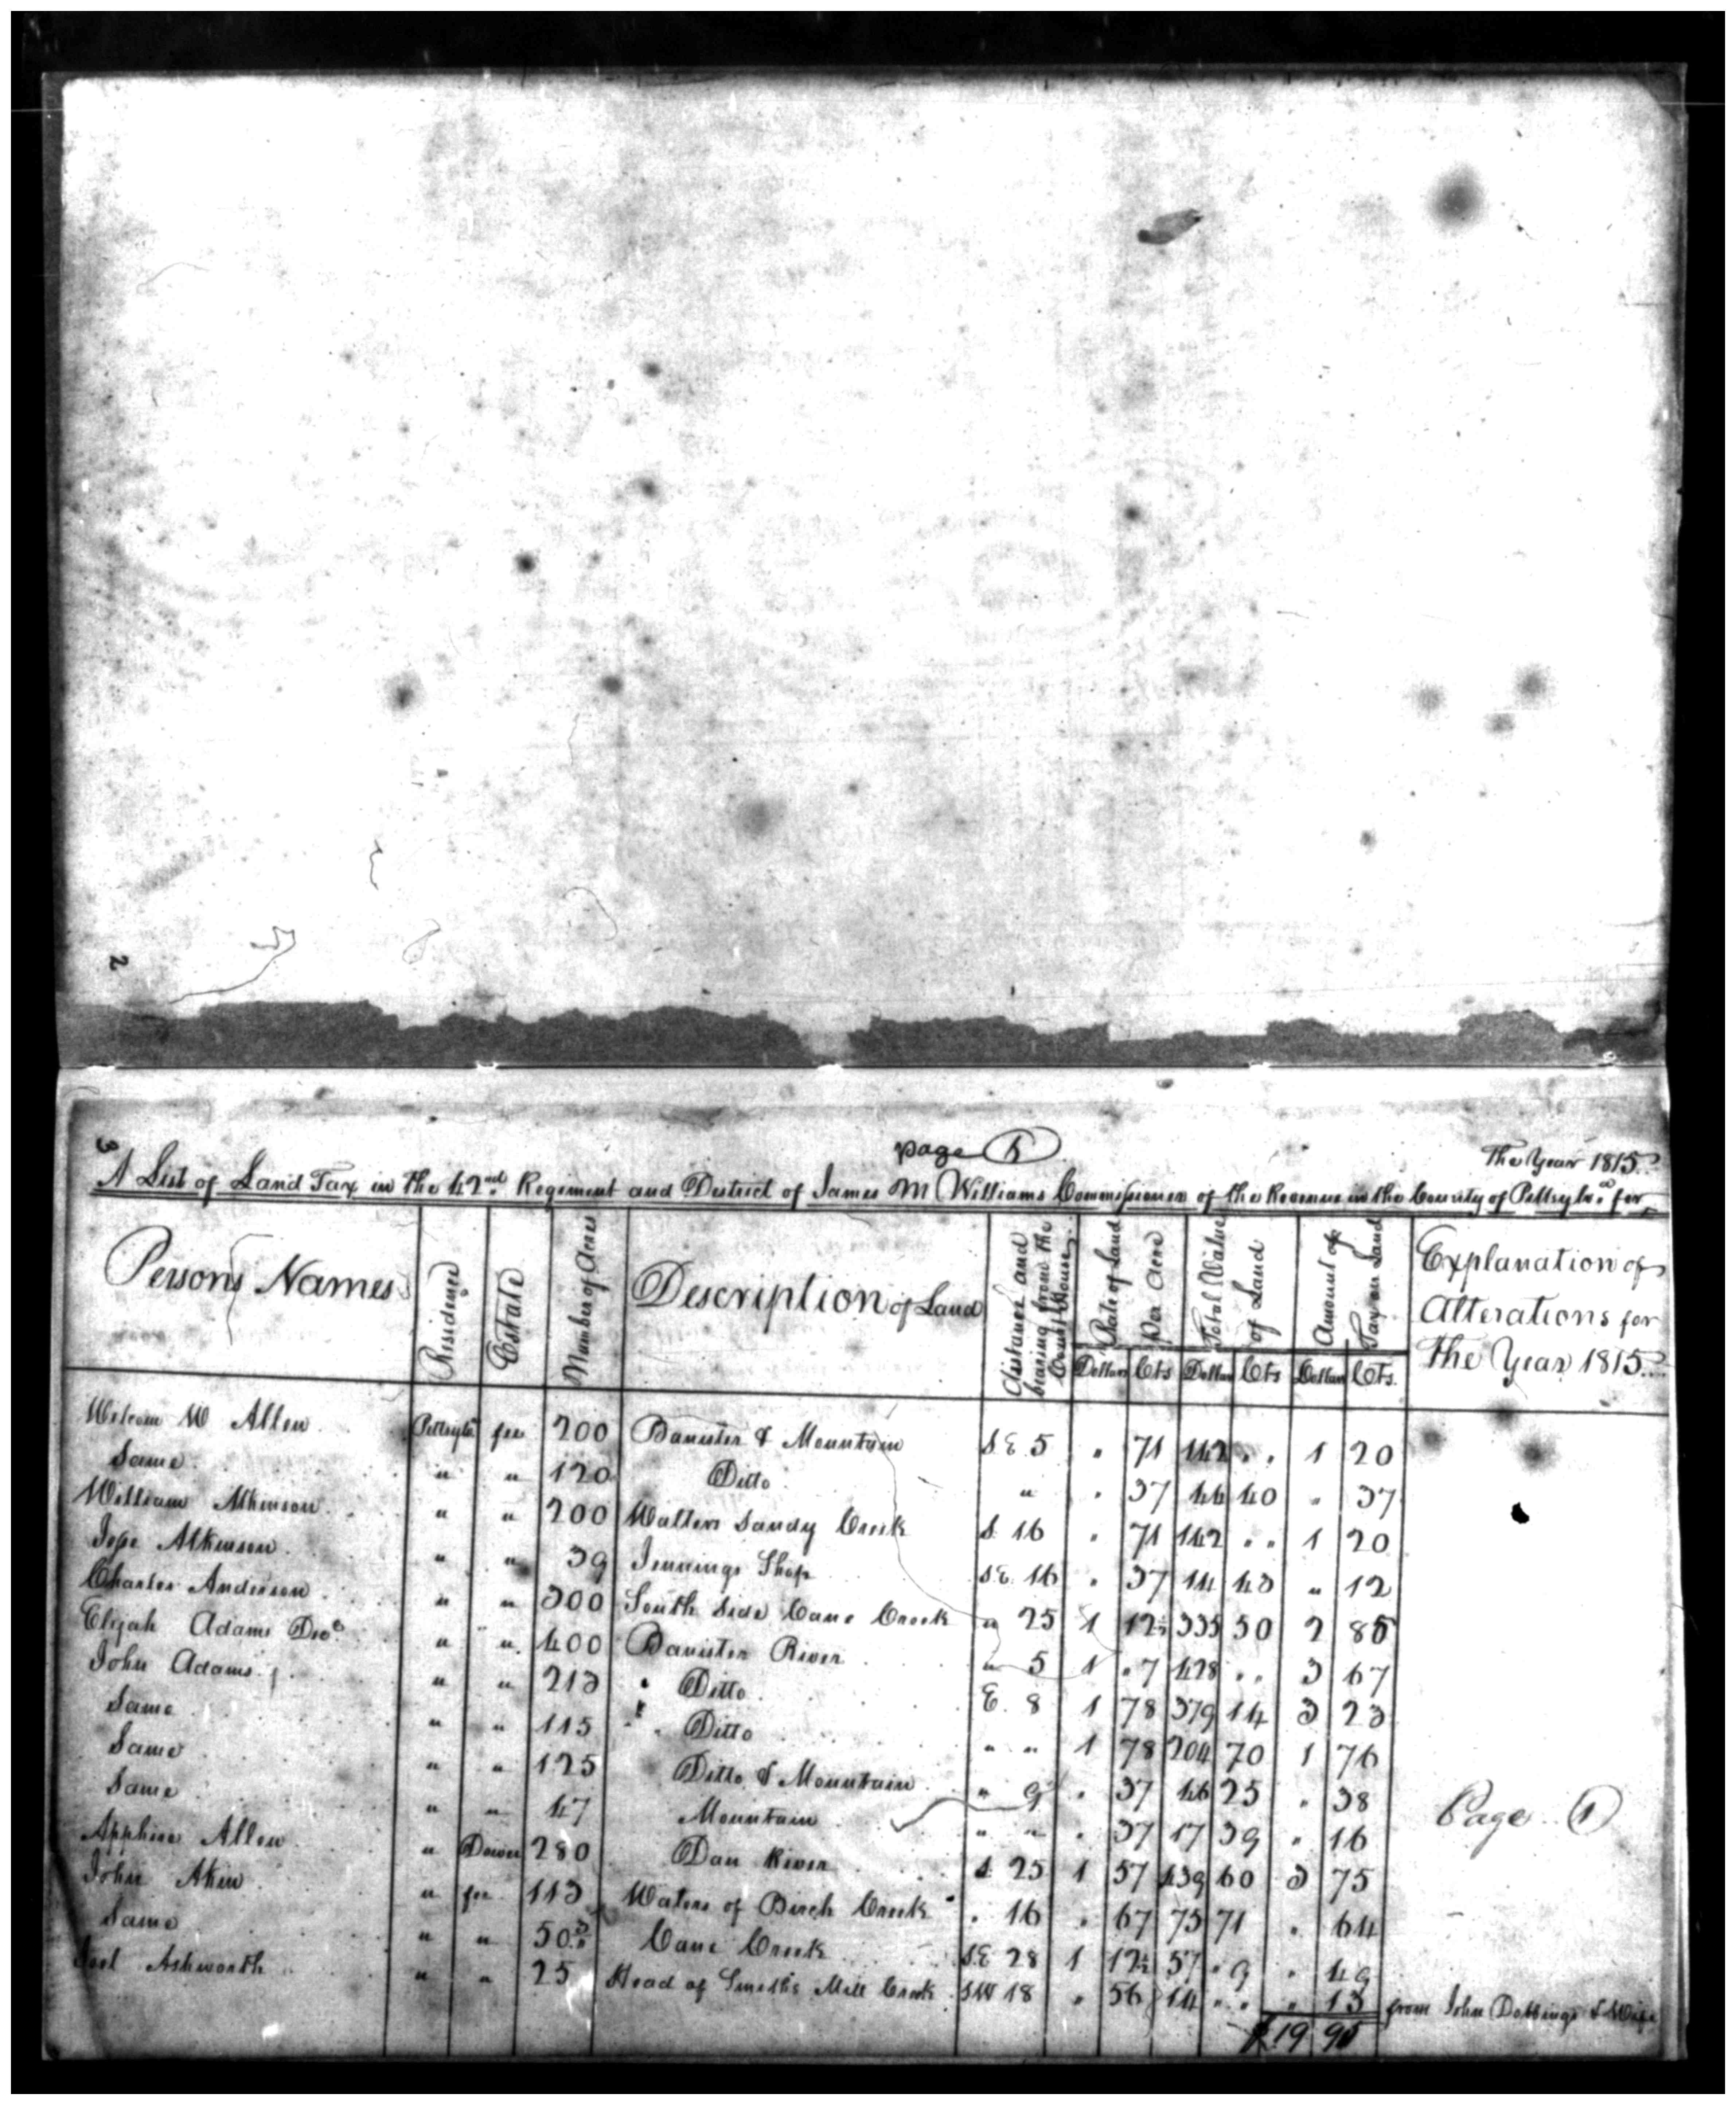 2
3
page 1
The Year 1815
A List of Land Tax in the 42nd Regiment and District of James M Williams Commissioner of the Revenue in the County of Pittsylva for
Persons Names Residence Estate Number of Acres Description of Land Distance and bearing from the Court House Rate of Land Per Acre Total Value of Land Amount of Tax on Land Explanation of Alterations for the Year 1815
Dollars Cts Dollars Cts Dollars Cts
W Allen Pittsyla fee 200 Banister & Mountain S.E. 5 " 71 142 " " 1 20
Same " " 120 Ditto " " 37 44 40 " 37
William Atkinson " " 200 Walters Sandy Creek S. 16 " 71 142 " " 1 20
Jesse Atkinson " " 39 Jennings Shop S.E. 16 " 37 14 43 " 12
Charles Anderson " " 300 South Side Cane Creek " 25 1 12½ 335 50 2 85
Elijah Adams Decd " " 400 Banister River " 5 1 " 7 428 " " 3 67
John Adams " " 213 " Ditto E. 8 1 78 379 14 3 23
Same " " 115 " Ditto " " 1 78 204 70 1 76
Same " " 125 Ditto & Mountain " 9 " 37 46 25 " 38
Same " " 47 Mountain " " " 37 17 39 " 16
Allen " Dower 280 Dan River S. 25 1 57 439 60 3 75
John Akin " fee 113 Waters of Birch Creek " 16 " 67 75 71 " 64
Same " " 50 Cane Creek S.E. 28 1 12½ 57 " 9 " 49
Joel Ashworth " " 25 Head of Smiths Mill Creek SW 18 " 56 14 " " " 13 from John Dobbings & Wife
$19 95
Page 1